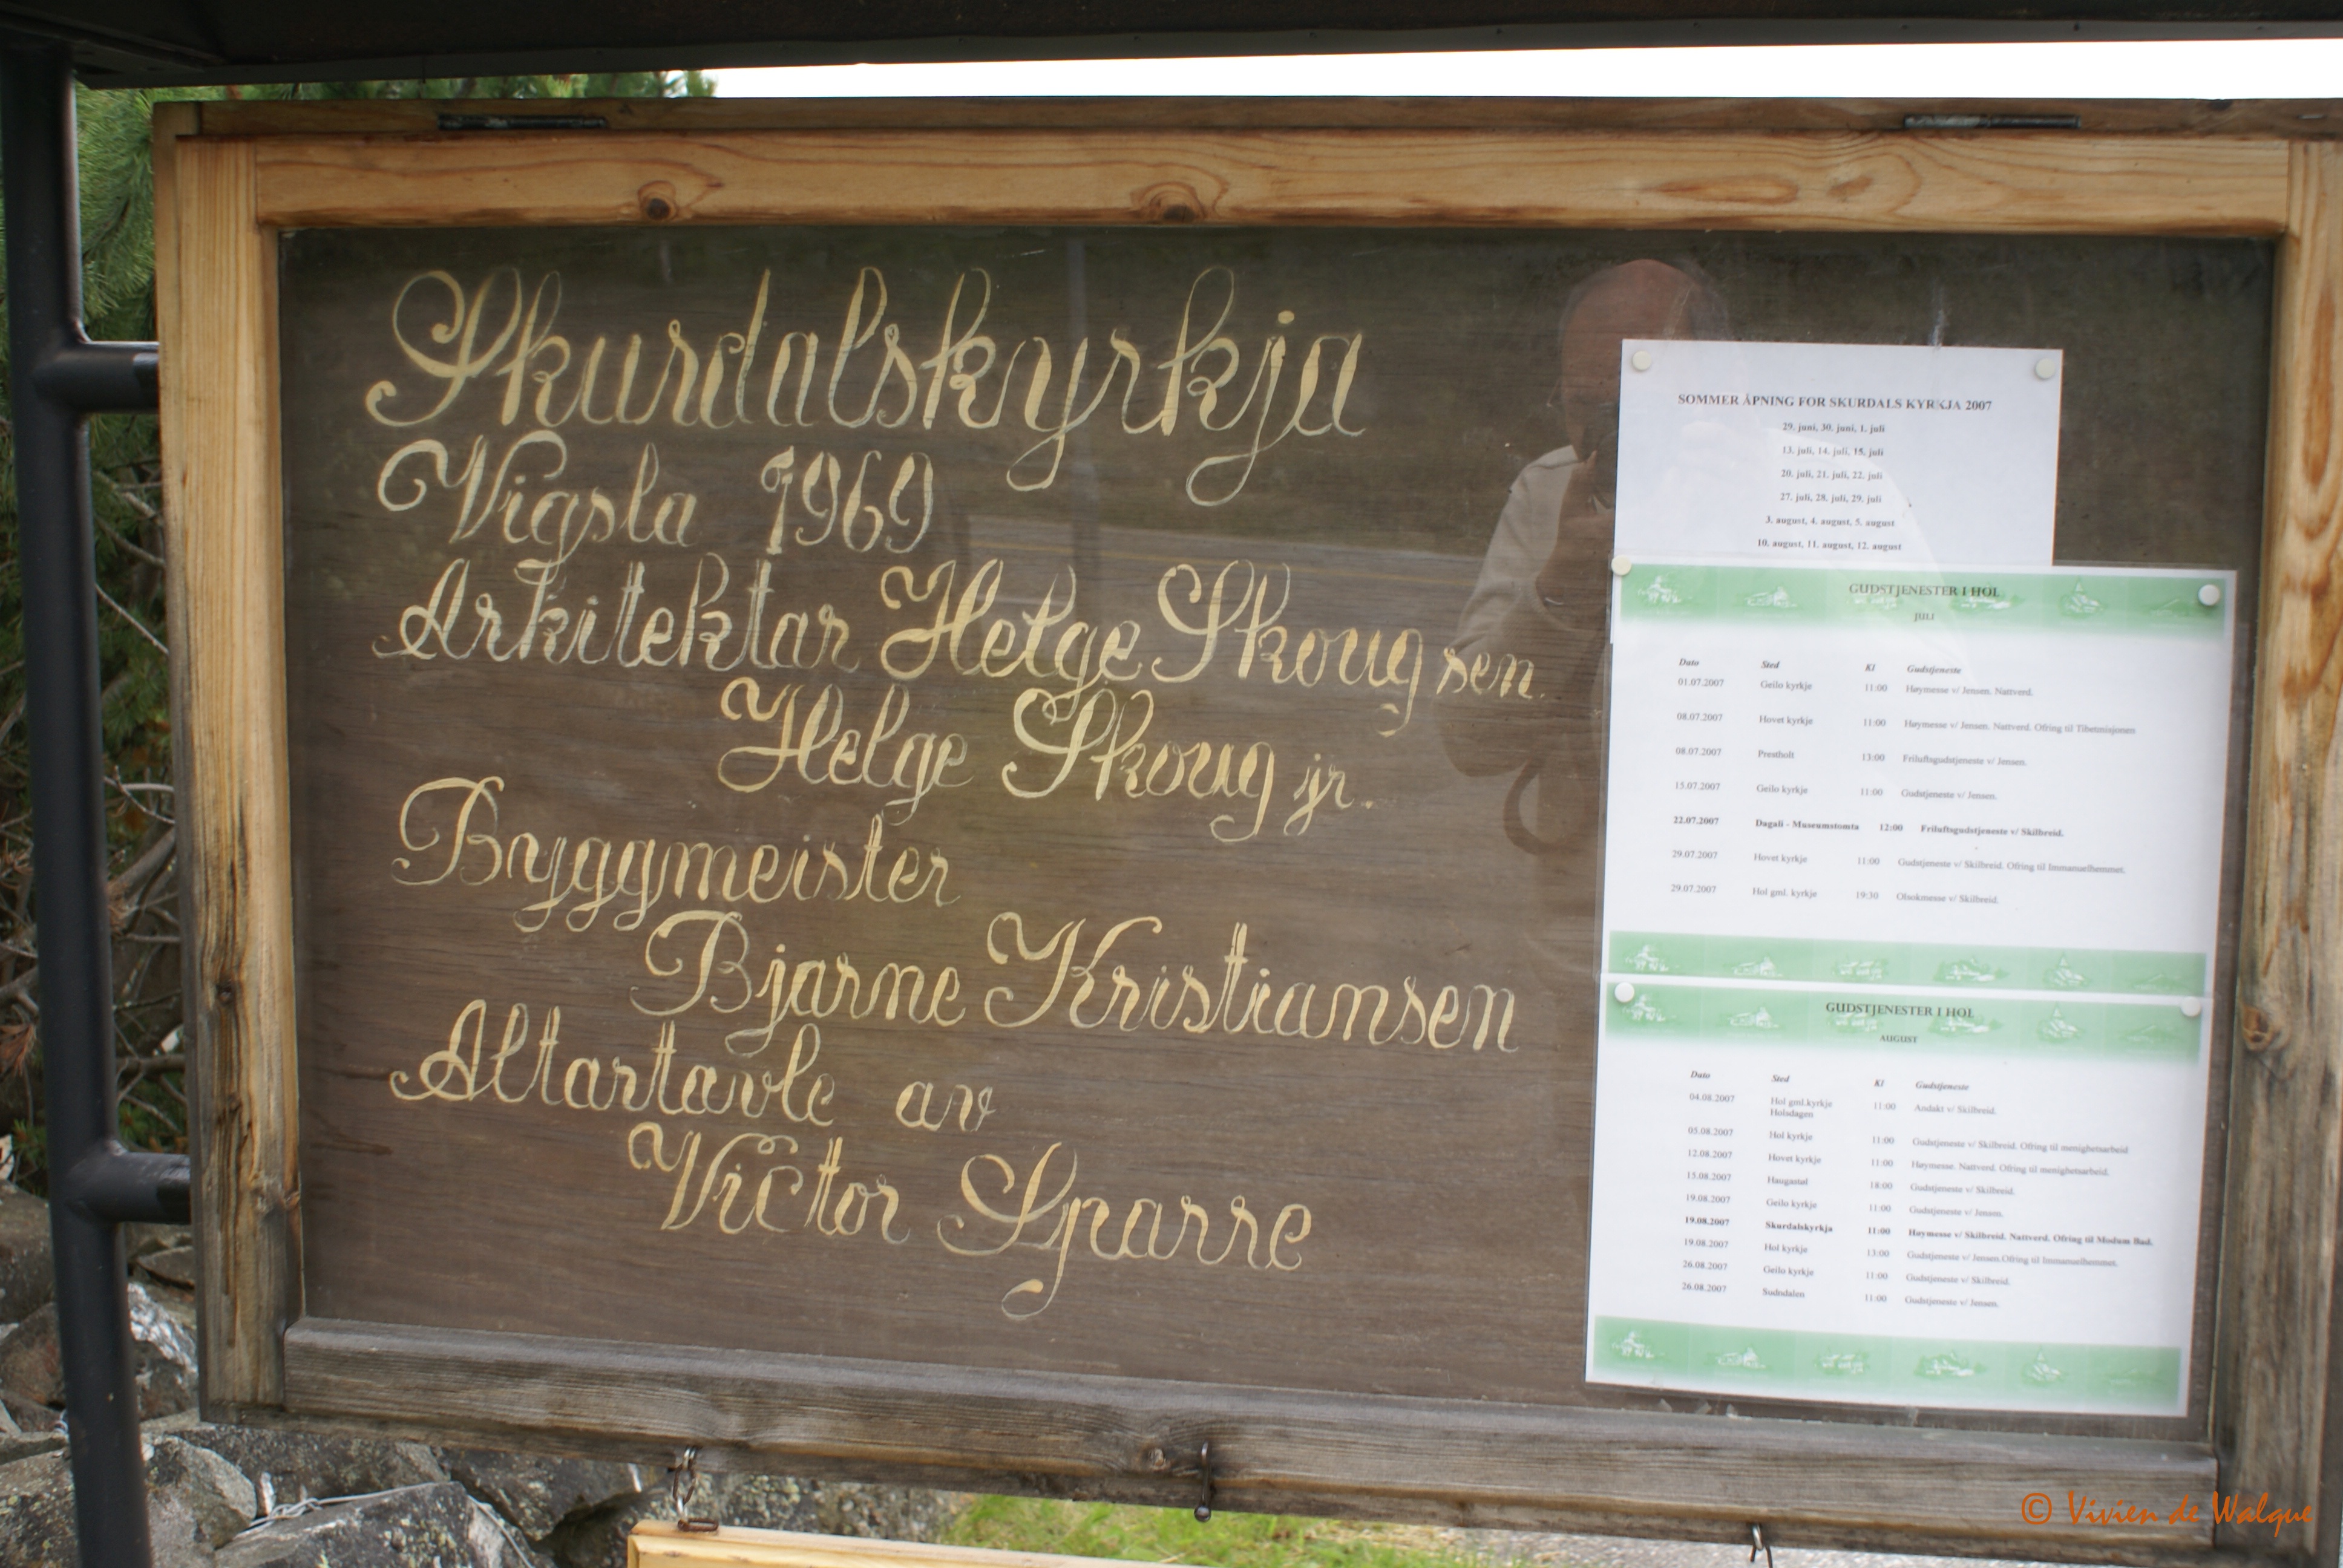 Skurdalskyrkja
Vigsla 1969
Arkitektar Helge Skoug sen.
Helge Skoug jr.
Byggmeister
Bjarne Kristiansen
Altartavle av
Victor Sparre
SOMMER ÅPNING FOR SKURDALS KYRKJA 2007
29. juni, 30. juni, 1. juli
13. juli, 14. juli, 15. juli
20. juli, 21. juli, 22. juli
27. juli, 28. juli, 29. juli
3. august, 4. august, 5. august
10. august, 11. august, 12. august
GUDSTJENESTER I HOL
JULI
Dato Sted Kl Gudstjeneste
01.07.2007 Geilo kyrkje 11:00 Høymesse v/ Jensen. Nattverd.
08.07.2007 Hovet kyrkje 11:00 Høymesse v/ Jensen. Nattverd. Ofring til Tibetmisjonen
08.07.2007 Prestholt 13:00 Friluftsgudstjeneste v/ Jensen.
15.07.2007 Geilo kyrkje 11:00 Gudstjeneste v/ Jensen.
22.07.2007 Dagali - Museumstomta 12:00 Friluftsgudstjeneste v/ Skilbreid.
29.07.2007 Hovet kyrkje 11:00 Gudstjeneste v/ Skilbreid. Ofring til Immanuelhemmet.
29.07.2007 Hol gml. kyrkje 19:30 Olsokmesse v/ Skilbreid.
GUDSTJENESTER I HOL
AUGUST
Dato Sted Kl Gudstjeneste
04.08.2007 Hol gml.kyrkje 11:00 Andakt v/ Skilbreid.
Holsdagen
05.08.2007 Hol kyrkje 11:00 Gudstjeneste v/ Skilbreid. Ofring til menighetsarbeid
12.08.2007 Hovet kyrkje 11:00 Høymesse. Nattverd. Ofring til menighetsarbeid.
15.08.2007 Haugastøl 18:00 Gudstjeneste v/ Skilbreid.
19.08.2007 Geilo kyrkje 11:00 Gudstjeneste v/ Jensen.
19.08.2007 Skurdalskyrkja 11:00 Høymesse v/ Skilbreid. Nattverd. Ofring til Modum Bad.
19.08.2007 Hol kyrkje 13:00 Gudstjeneste v/ Jensen.Ofring til Immanuelhemmet.
26.08.2007 Geilo kyrkje 11:00 Gudstjeneste v/ Skilbreid.
26.08.2007 Sudndalen 11:00 Gudstjeneste v/ Jensen.
© Vivien de Walque